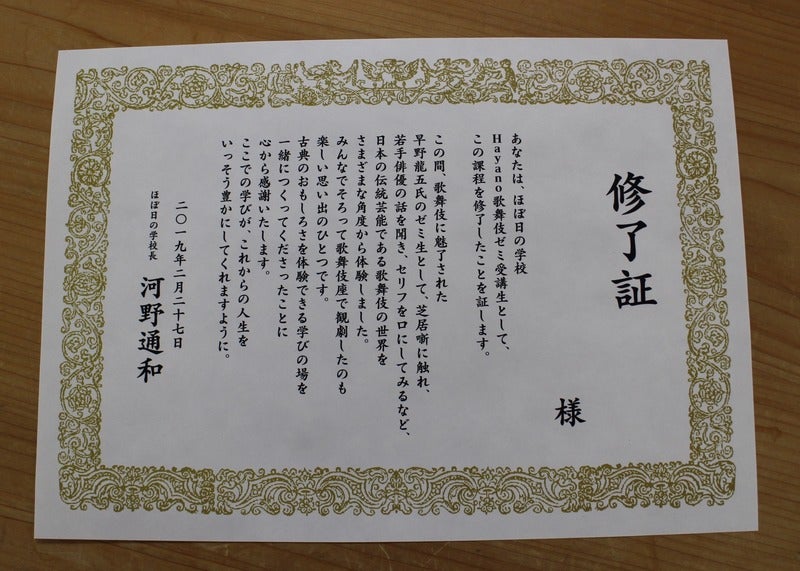 修了証
様
あなたは、ほぼ日の学校
Hayano歌舞伎ゼミ受講生として、
この課程を修了したことを証します。
この間、歌舞伎に魅了された
早野龍五氏のゼミ生として、芝居噺に触れ、
若手俳優の話を聞き、セリフを口にしてみるなど、
日本の伝統芸能である歌舞伎の世界を
さまざまな角度から体験しました。
みんなでそろって歌舞伎座で観劇したのも
楽しい思い出のひとつです。
古典のおもしろさを体験できる学びの場を
一緒につくってくださったことに
心から感謝いたします。
ここでの学びが、これからの人生を
いっそう豊かにしてくれますように。
二〇一九年二月二十七日
ほぼ日の学校長 河野通和